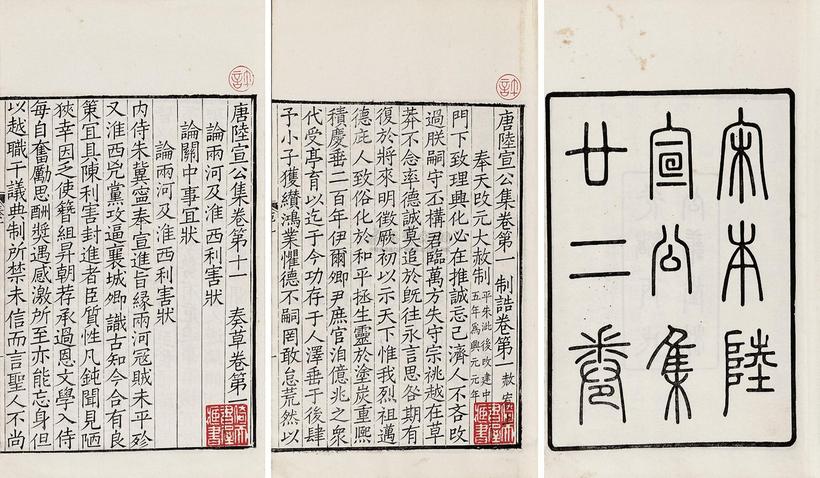 宋本陸
宣公集
廿二卷
唐陸宣公集卷第一 制誥卷第一 赦宥
奉天改元大赦制 平朱泚後改建中五年為興元元年
門下致理興化必在推誠忘己濟人不吝改
過朕嗣守丕構君臨萬方失守宗祧越在草
莽不念率德誠莫追於既往永言思咎期有
復於將來明徵厥初以示天下惟我烈祖邁
德庇人致俗化於和平拯生靈於塗炭重熙
積慶垂二百年伊爾卿尹庶官洎億兆之衆
代受亭育以迄于今功存于人澤垂于後肆
予小子獲纘鴻業懼德不嗣罔敢怠荒然以
唐陸宣公集卷第十一 奏草卷第一
論兩河及淮西利害狀
論關中事宜狀
論兩河及淮西利害狀
內侍朱冀寧奉宣進旨緣兩河寇賊未平殄
又淮西兇黨攻逼襄城卿識古知今合有良
策宜具陳利害封進者臣質性凡鈍聞見陋
狹幸因乏使簪組昇朝荐承過恩文學入侍
每自奮勵思酬獎遇感激所至亦能忘身但
以越職干議典制所禁未信而言聖人不尚